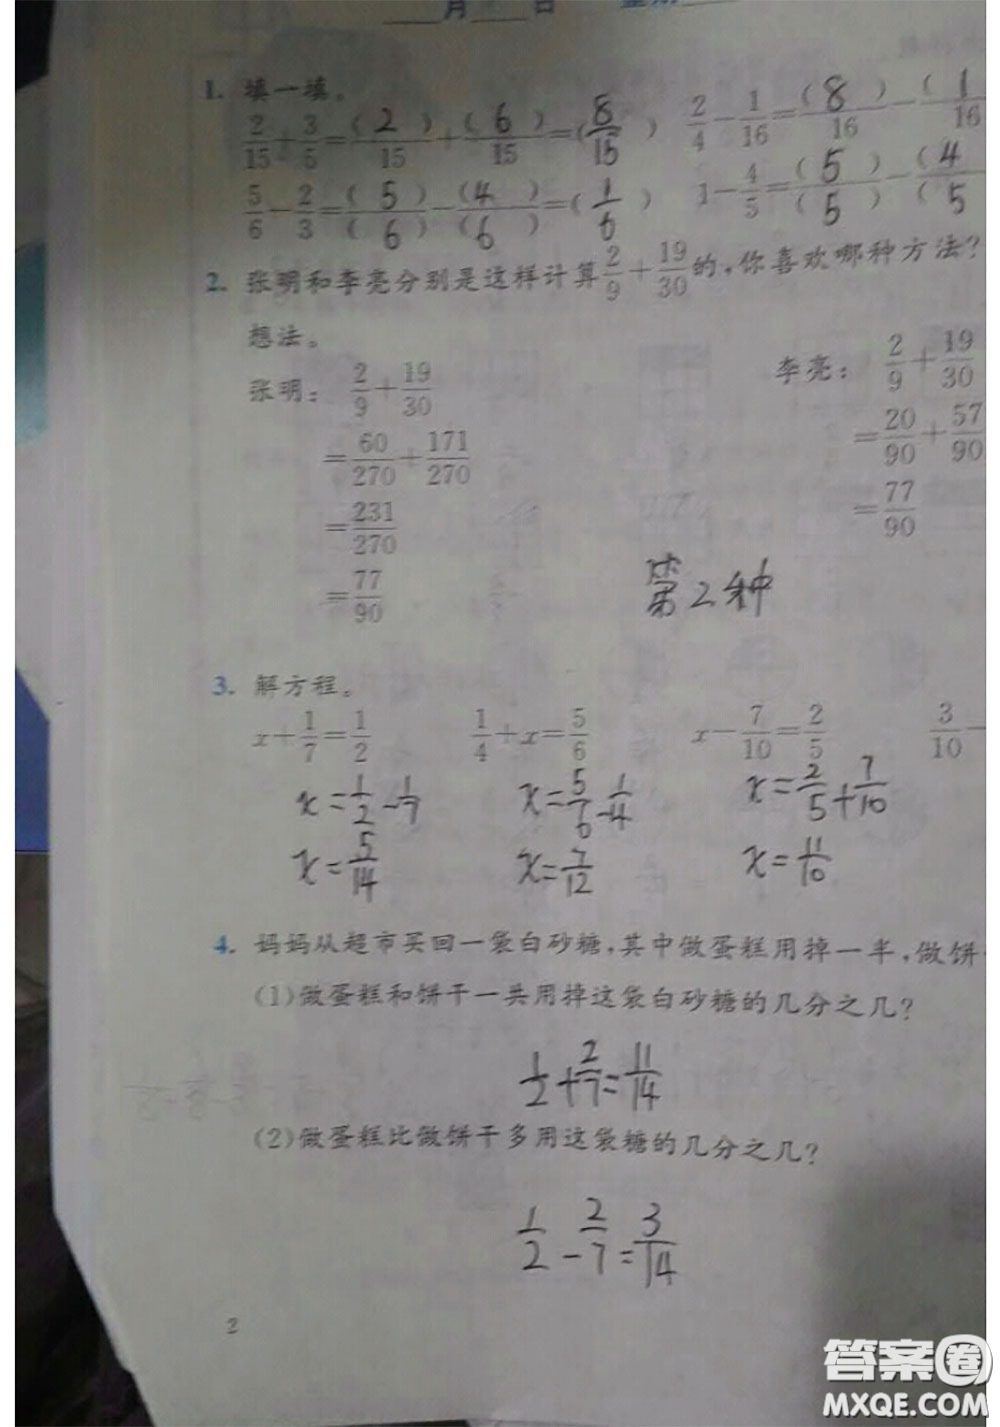 月 日 星期
1. 填一填。
2/15+3/5=(2)/15+(6)/15=(8/15) 2/4-1/16=(8)/16-(1/16
5/6-2/3=(5)/(6)-(4)/(6)=(1/6) 1-4/5=(5)/(5)-(4/(5
2. 张明和李亮分别是这样计算2/9+19/30的,你喜欢哪种方法?
想法。
张明: 2/9+19/30 李亮: 2/9+19/30
=60/270+171/270 =20/90+57/90
=231/270 =77/90
=77/90 第2种
3. 解方程。
x+1/7=1/2 1/4+x=5/6 x-7/10=2/5 3/10-
x=1/2-1/7 x=5/6-1/4 x=2/5+7/10
x=5/14 x=7/12 x=11/10
4. 妈妈从超市买回一袋白砂糖,其中做蛋糕用掉一半,做饼
(1)做蛋糕和饼干一共用掉这袋白砂糖的几分之几?
1/2+2/7=11/14
(2)做蛋糕比做饼干多用这袋糖的几分之几?
1/2-2/7=3/14
2
答案圈
MXQE.COM